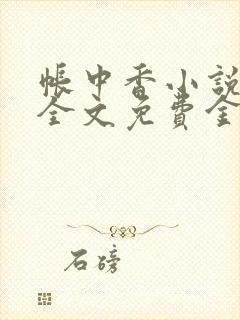 帳中香小說
全文免費全
石磅